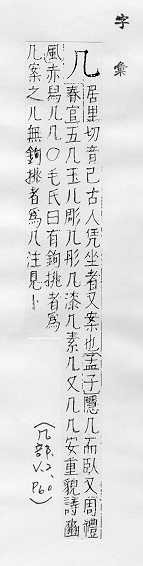 字彙
几 居里切音己古人凭坐者又案也孟子隱几而臥又周禮
春官五几玉几彫几彤几漆几素几又几几安重貌詩豳
風赤舄几几〇毛氏曰有鉤挑者為
几案之几無鉤挑者為几注見
(几部
V.2,
P60)